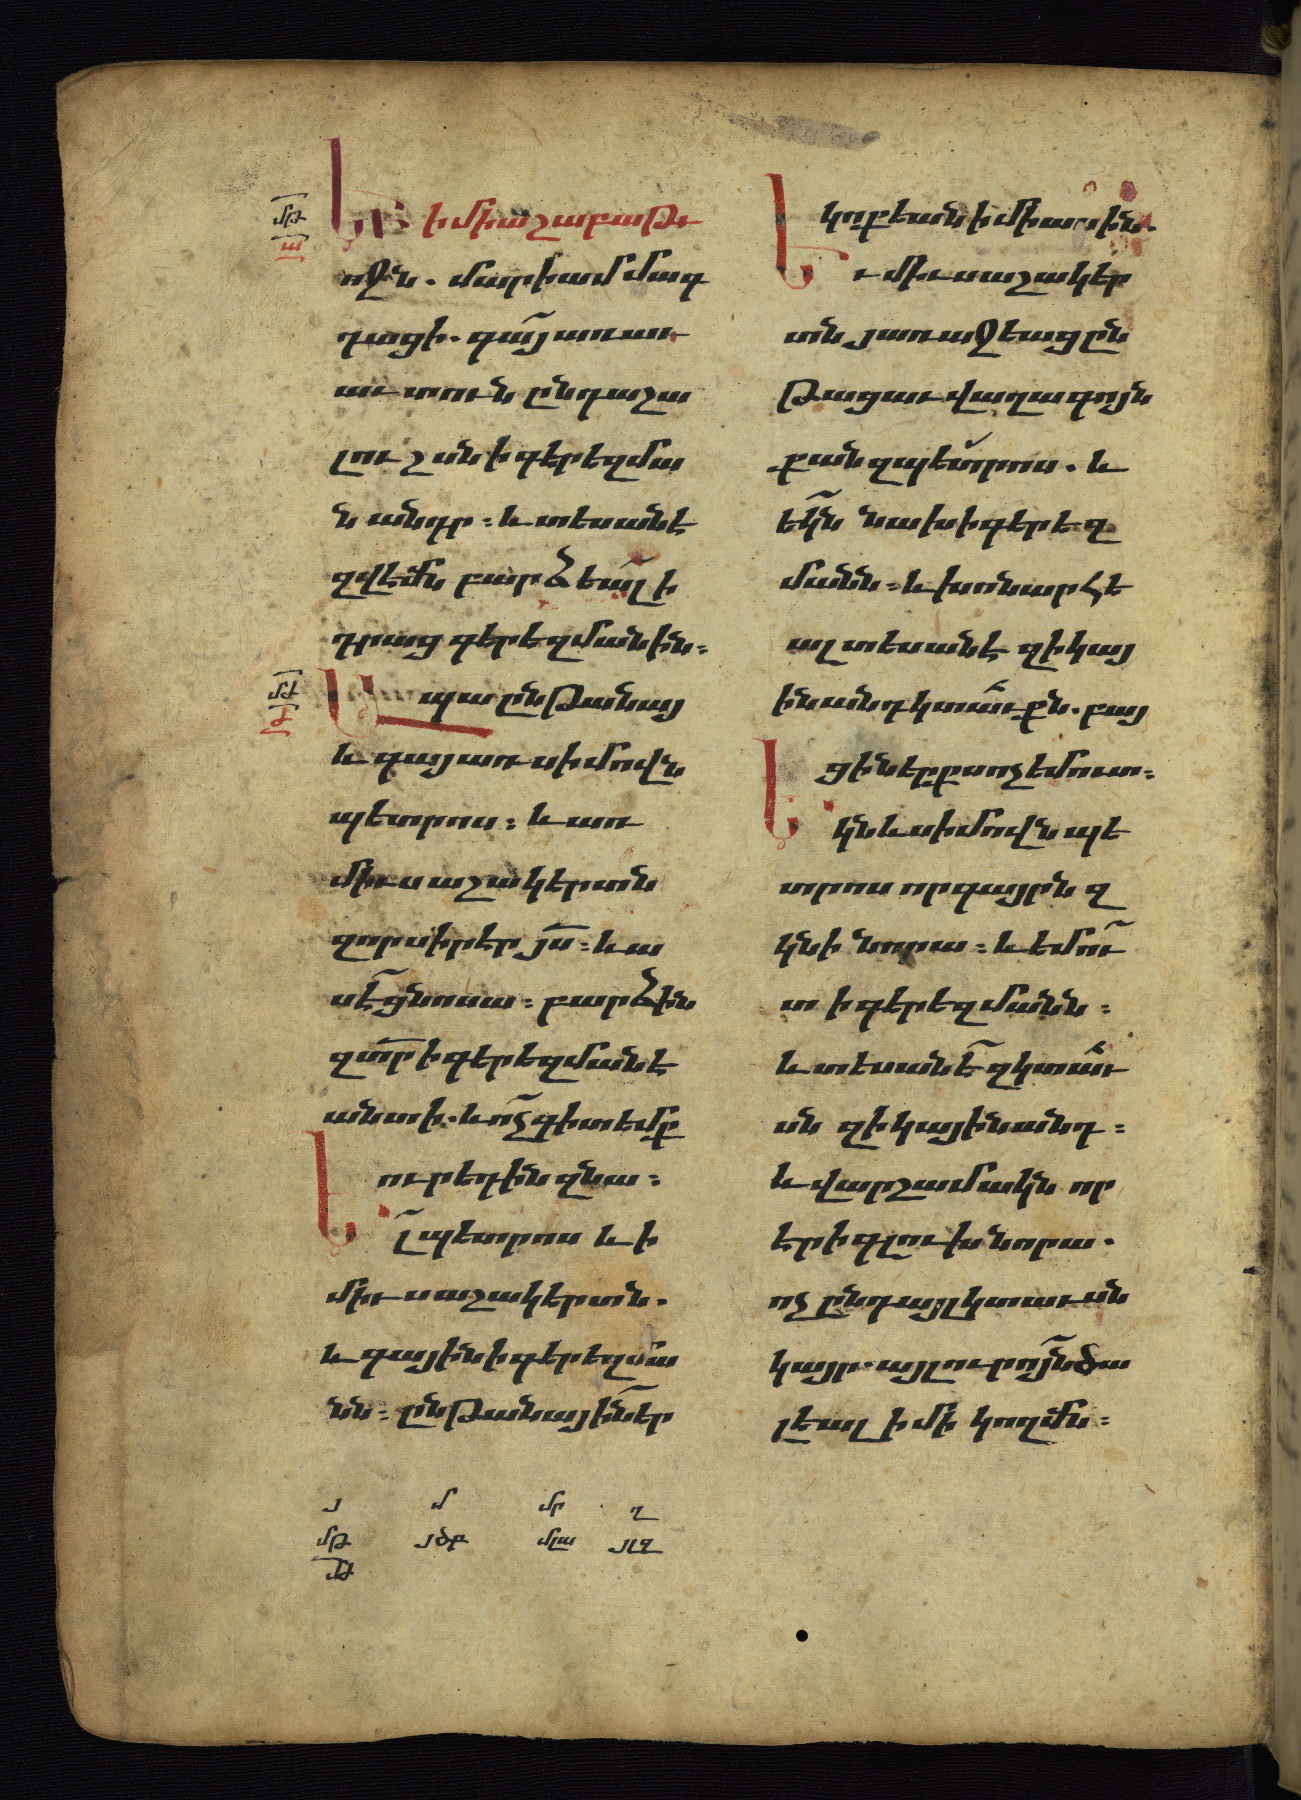 մթ
ա
Եւ ի միաշաբաթւ
ոջն. մարիամ մագ
դացի. գայ առաւ
աւտուն ընդաշա
լուշան ի գերեզմա
ն անդր : և տեսանէ
զվէմն բարձեալ ի
դրաց գերեզմանին :
մթ
բ
Ապա ընթանայ
և գայ առ սիմովն
պետրոս : և առ
միւս աշակերտն
զոր սիրէր յս : և ա
սէ ցնոսա : բարձին
զտր ի գերեզմանէ
անտի. և ոչ գիտեմք
ուր եդին զնա :
Ել պետրոս և ի
միւս աշակերտն.
և գային ի գերեզմա
նն : ընթանային եր
կոքեան ի միասին.
Եւ միւս աշակեր
տն յառաջեաց ըն
թացաւ վաղագոյն
քան զպետրոս. և
եկն նախ ի գերեզ
մանն : և խոնարհե
ալ տեսանէ զի կայ
ին անդ կտաւքն. բայ
ց ի ներքս ոչ եմուտ :
Եկն և սիմովն պե
տրոս որ գայր ըն զ
կնի նորա : և եմու
տ ի գերեզմանն :
և տեսանէ զկտաւ
սն զի կային անդ :
և վարշամակն որ
էր ի գլուխ նորա.
ոչ ընդ այլ կտաւսն
կայր. այլ ուրոյն ծա
լեալ ի մի կողմն :
յ մ մր ղ
մթ յծբ մլա յլղ
մթ